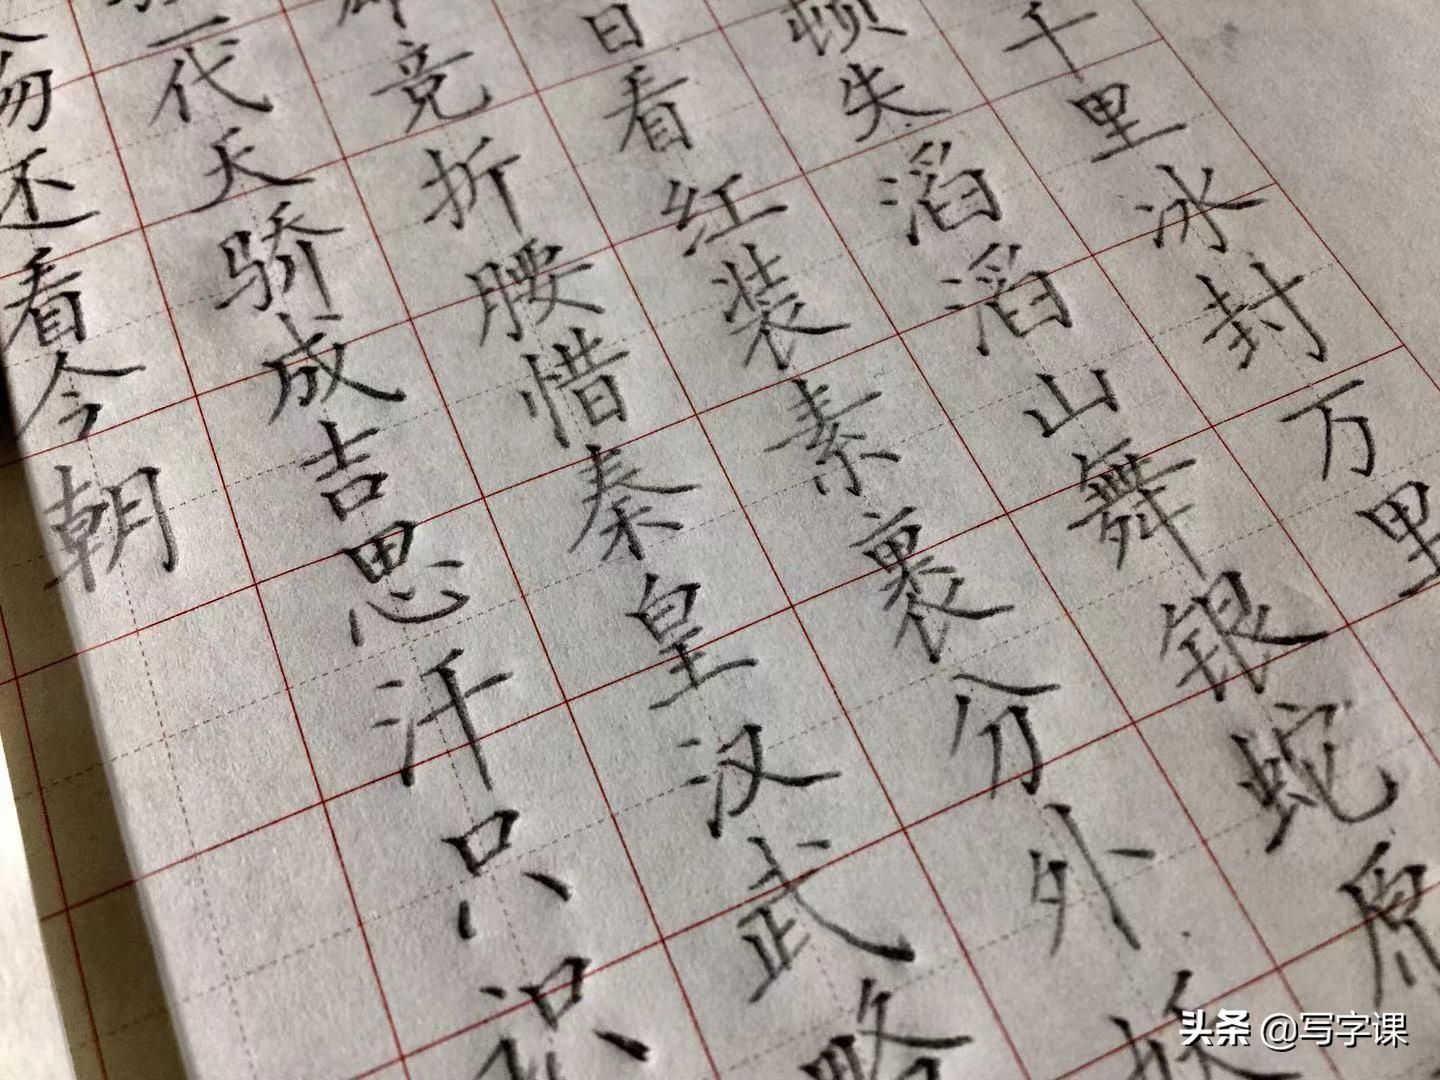 千里冰封万里
顿失滔滔山舞银蛇原
日看红装素裹分外妖
竞折腰惜秦皇汉武略
一代天骄成吉思汗只识
物还看今朝
头条 @写字课